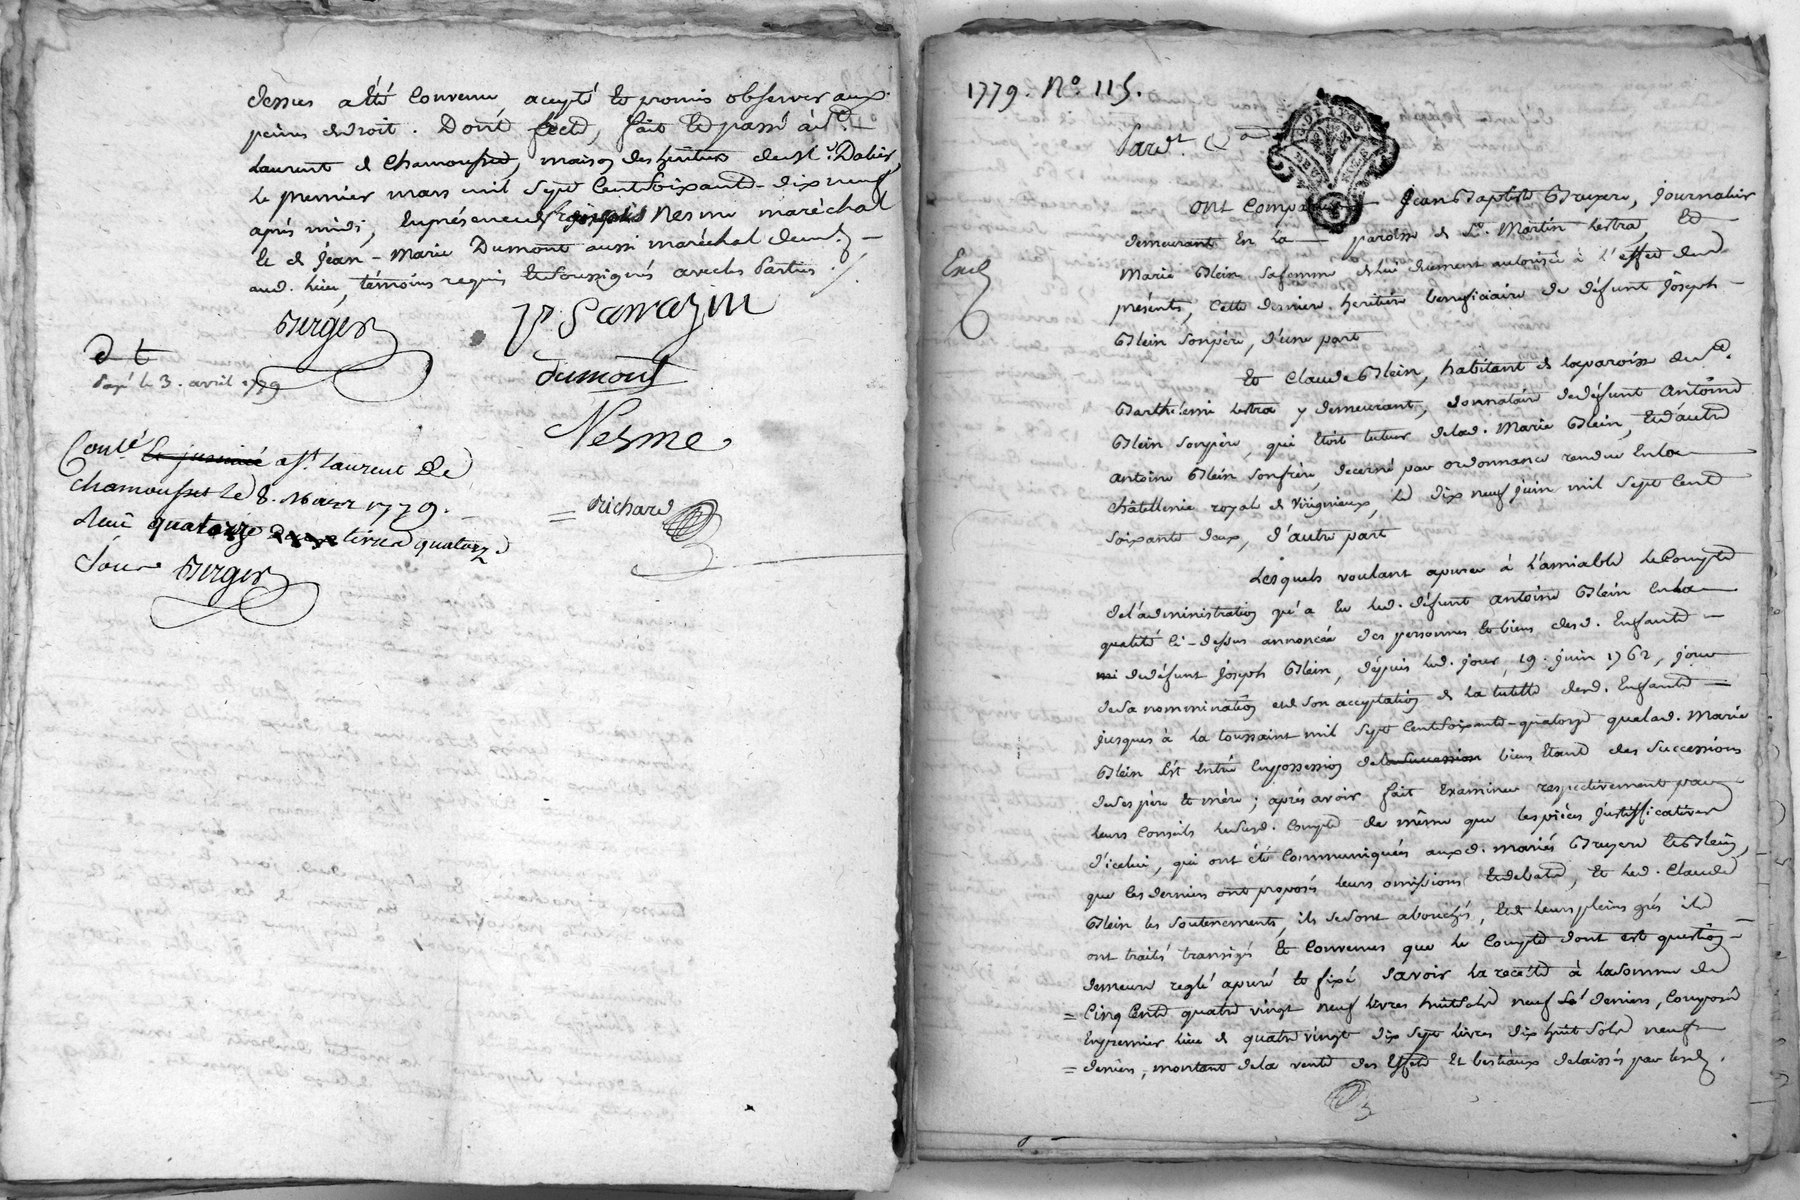 dessus a été convenu, accepté et promis observer aux
peines de droit. Dont acte, fait et passé à St.
Laurent de Chamousset, maison des héritiers du Sr. Dalier,
le premier mars mil sept cent soixante-dix neuf
après midi, en présence de françois Nesme maréchal
et de jean-Marie Dumont aussi maréchal dem.t
aud. lieu, témoins requis et soussignés avec les parties ./.
Berger
P. Sarrazin
dumont
d t
payé le 3. avril 1779
Nesme
Conlé et jussieé a St. Laurent De
Chamousset Le 8. Mars 1779.
Reçu quatorze livres quatorze
sous Berger
= Richard
1779. No. 115.
Pard.t
ont comparu jean Baptiste Bruyere, journalier
demeurant en la paroisse de St. Martin Lestra, et
Exp.
Marie Blein sa femme de lui duement autorisée à l'effet des
présentes, cette derniere héritiere beneficiaire de défunt joseph
Blein son père, d'une part
Et Claude Blein, habitant de la paroisse de St.
Barthélemi Lestra y demeurant, donnataire de défunt antoine
Blein son père, qui étoit tuteur de lad. Marie Blein, et d'autre
antoine Blein son frère, decerné par ordonnance rendue en la
châtellenie royale de Virignieux, le dix neuf juin mil sept cent
soixante deux, d'autre part
Lesquels voulant apurer à l'amiable le compte
de l'administration qu'a eu led. défunt antoine Blein en la
qualité ci-dessus annoncée des personnes et biens desd. Enfants
de défunt joseph Blein, depuis led. jour 19. juin 1762, jour
de sa nommination et de son acceptation de la tutelle desd. Enfants
jusques à la toussaint mil sept cent soixante-quatorze que lad. Marie
Blein s'est entrée en possession de la succession biens étant des successions
de ses père et mère ; après avoir fait examiner respectivement par
leurs conseils le susd. compte de même que les pièces justifficatives
d'icelui, qui ont été communiquées auxd. mariés Bruyere et Blein,
que les derniers ont proposés leurs omissions et debats, et led. Claude
Blein les soutenements, ils se sont abouchés, et de leurs pleins grés ils
ont traités transigés et convenus que le compte dont est question
demeure reglé apuré et fixé savoir la recette à la somme de
= cinq cents quatre vingt neuf livres huit sols neuf deniers, composée
en premier lieu de quatre vingt dix sept livres dix huit sols neuf
= deniers, montant de la vente des effets et bestiaux délaissés par led.